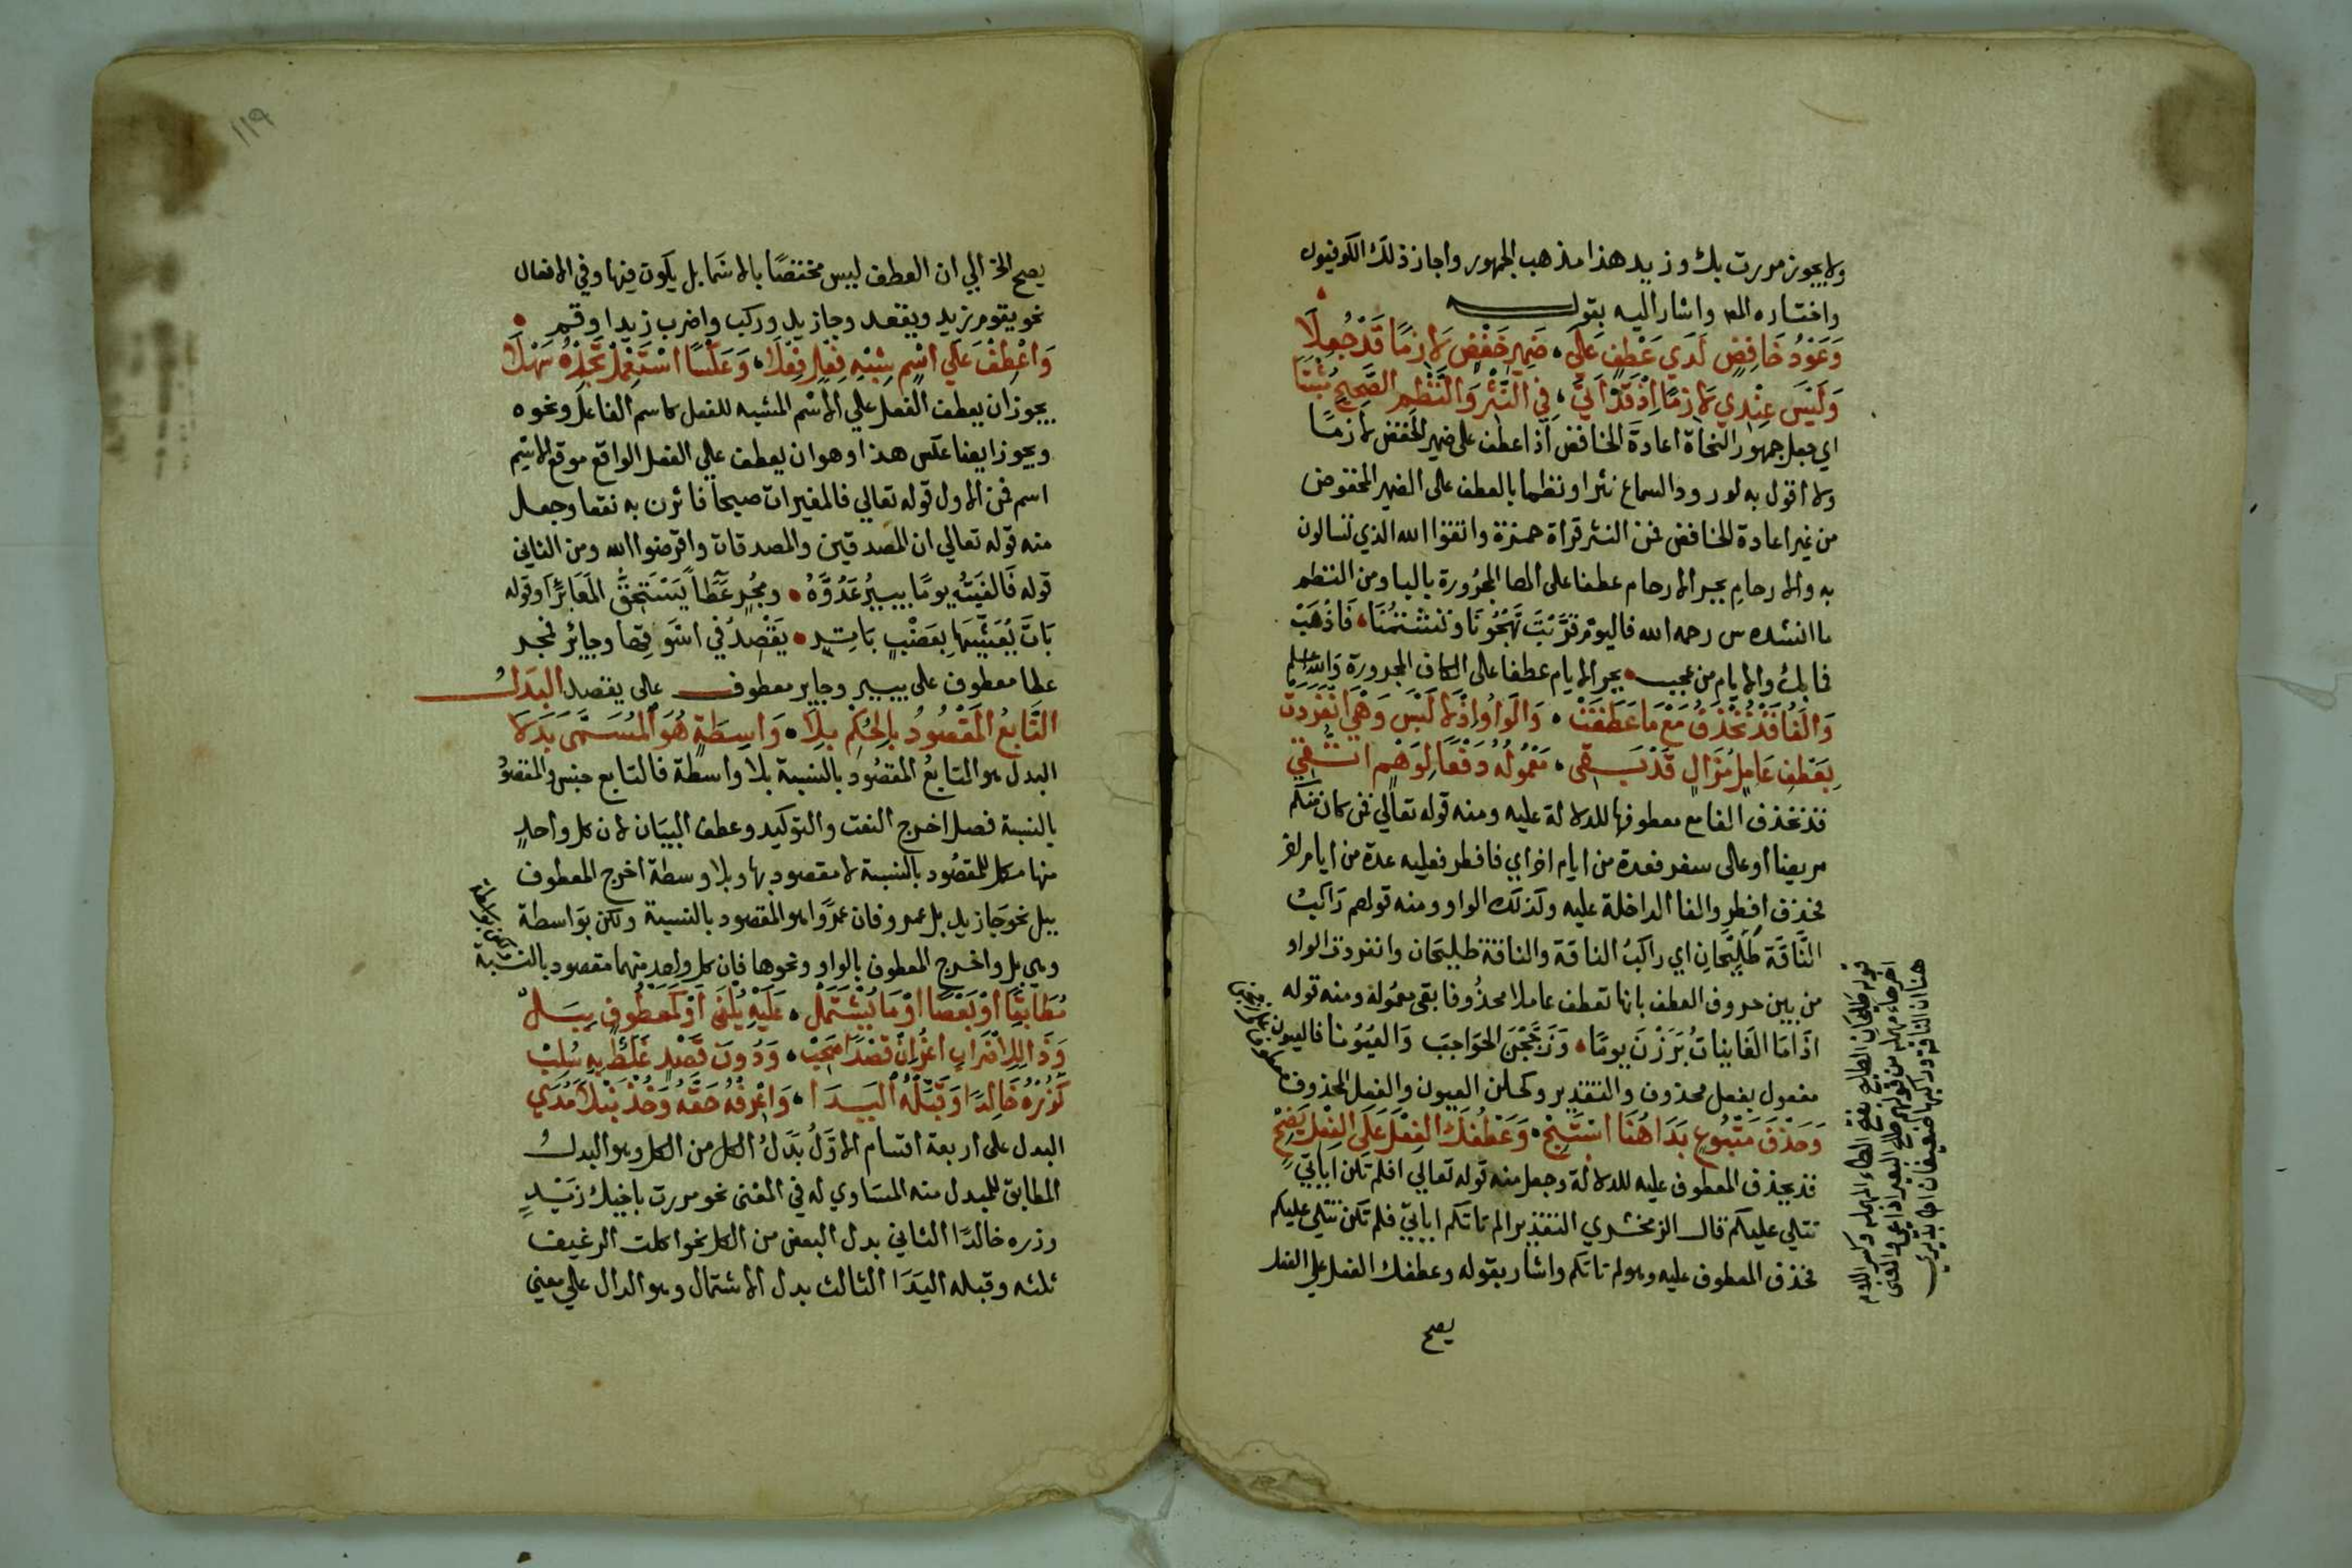 ولا يجوز مررت بك وزيد هذا مذهب الجمهور واجاز ذلك الكوفيون
واختاره المص واشار اليه بقوله
وَعَوْدُ خَافِضٍ لَدَي عَطْفٍ عَلَي • ضَمِيرِ خَفْضٍ لَازِمًا قَدْ جُعِلَا
وَلَيْسَ عِنْدِي لَازِمًا اِذْ قَدْ اَتَي • فِي النَّثْرِ وَالنَّظْمِ الصَّحِيحِ مُثْبَتَا
اي جعل جمهور النحاة اعادة الخافض اذا عطف على ضمير الخفض لازمًا
ولا اقول به لورود السماع نثرا ونظما بالعطف على الضمير المخفوض
من غير اعادة الخافض فمن النثر قراة حمزة واتقوا الله الذي تسالون
به والارحامِ بجر الارحام عطفا على الها المجرُورة بالبا ومن النظم
ما انشده س رحمه الله فاليوم قرّبْتَ تَهْجُونَا وتَشْتمُنَا • فَاذْهَبْ
فما بك والايام من عجب • بجر الايام عطفا على الكاف المجرورة والله اعلم
وَالْفَا قَدْ تُحْذَفُ مَعْ مَا عَطَفَتْ • وَالْوَاوُ اِذْ لَا لَبْسَ وَهْيَ انْفَرَدَتْ
بِعَطْفِ عَامِلٍ مُزَالٍ قَدْ بَقِي • مَعْمُولُهُ دَفْعًا لِوَهْمٍ اتُّقِي
قد تحذف الفا مع معطوفها للدلالة عليه ومنه قوله تعالي فمن كان منكم
مريضا او على سفر فعدة من ايام اخر اي فافطر فعليه عدة من ايام اخر
فحذف افطر والفا الداخلة عليه وكذلك الواو ومنه قولهم رَاكبُ
النَّاقَة طَلِيْحَانِ اي راكبُ الناقة والناقة طليحَان وانفردت الواو
من بين حروف العطف بانها تعطف عاملا محذُوفا بقى معمُوله ومنه قوله
اذَا مَا الغَانِيَاتُ بَرَزْنَ يومًا • وَزَجَّجْنَ الحَوَاجِبَ وَالعُيُونا فالعيون
مفعول بفعل محذوف والتقدير وكحلن العيون والفعل المحذوف
وَحَذْفَ مَتْبُوعٍ بَدَا هُنَا اسْتَبِحْ • وَعَطْفُكَ الفِعْلَ عَلَى الفِعْلِ يَصِحّ
قد يحذف المعطوف عليه للدلالة وجعل منه قوله تعالي افلم تكن اياتي
تتلي عليكم قال الزمخشري التقدير الم تاتكم اياتي فلم تكن تتلي عليكم
فحذف المعطوف عليه وهو لم تاتكم واشار بقوله وعطفك الفعل علي الفعل
يصح
قوله طليحان الطليح بفتح الطاء المهملة وكسر اللام
يصح الخ الي ان العطف ليس مختصًا بالاسَما بل يكون فيها وفي الافعال
نحو يقوم زيد ويقعد وجا زيد وركب واضرب زيدا وقم •
وَاعْطِفْ عَلَي اسْمٍ شِبْهِ فِعْلٍ فِعْلًا • وَعَكْسًا اسْتَعْمِلْ تَجِدْهُ سَهْلَا
يجوز ان يعطف الفعل علي الاسْم المشبه للفعل كاسم الفاعل ونحوه
ويجوز ايضا عكس هذا وهو ان يعطف علي الفعل الواقع موقع الاسم
اسم فمن الاول قوله تعالي فالمغيرات صبحا فاثرن به نقعا وجعل
منه قوله تعالي ان المصدقين والمصدقات واقرضوا الله ومن الثاني
قوله فَالفَيتُه يومًا يبيرُ عَدُوَّهُ • ومُجْرٍ عَطَاً يَسْتَحِقُّ المَعَابِرَا وقوله
بَاتَ يُعَشِّيهَا بِعَضْبٍ بَاتِرٍ • يَقْصِدُ في اسْوَقِهَا وجائر فمجر
عطا معطوف على يبير وجاير معطوف على يقصد البَدَلُ
التَّابِعُ المَقْصُودُ بِالحُكْمِ بِلَا • وَاسِطَةٍ هُوَ المُسَمَّى بَدَلَا
البدل هو التابعُ المقصُود بالنسبة بلا واسطة فالتابع جنس والمقصودُ
بالنسبة فصل اخرج النعت والتوكيد وعطف البيَان لان كل واحدٍ
منها مكمل للمقصُود بالنسبة لا مقصود بها وبلا وسطة اخرج المعطوف
ببل نحو جَا زيد بل عمرو فان عمرًوا هو المقصود بالنسبة ولكن بوَاسطة
وهي بل واخرج المعطوف بالواو ونحوها فان كل واحد منهما مقصود بالنسْبة
مُطَابِقًا اَوْ بَعْضًا اَوْ مَا يُشْتَمَلْ • عَلَيْهِ يُلْفَى اَوْ كَمَعْطُوفٍ بِبَلْ
وَذَا لِلِاضْرَابِ اعْزُ اِنْ قَصْدًا صَحِبْ • وَدُونَ قَصْدٍ غَلَطٌ بِهِ سُلِبْ
كَزُرْهُ خَالِدًا وَقَبِّلْهُ اليَدَا • وَاعْرِفْهُ حَقَّهُ وَخُذْ نَبْلًا مُدَي
البدل على اربعة اقسام الاوّلُ بَدَلُ الكل من الكل وهو البدلُ
المطابق للمبدل منه المسَاوي له في المعنى نحو مررت باخيك زَيْدٍ
وزره خالدًا الثاني بدل البعض من الكل نحو اكلت الرغيف
ثلثه وقبله اليَدَا الثالث بدل الاشتمال وهو الدال علي معني
١١٩